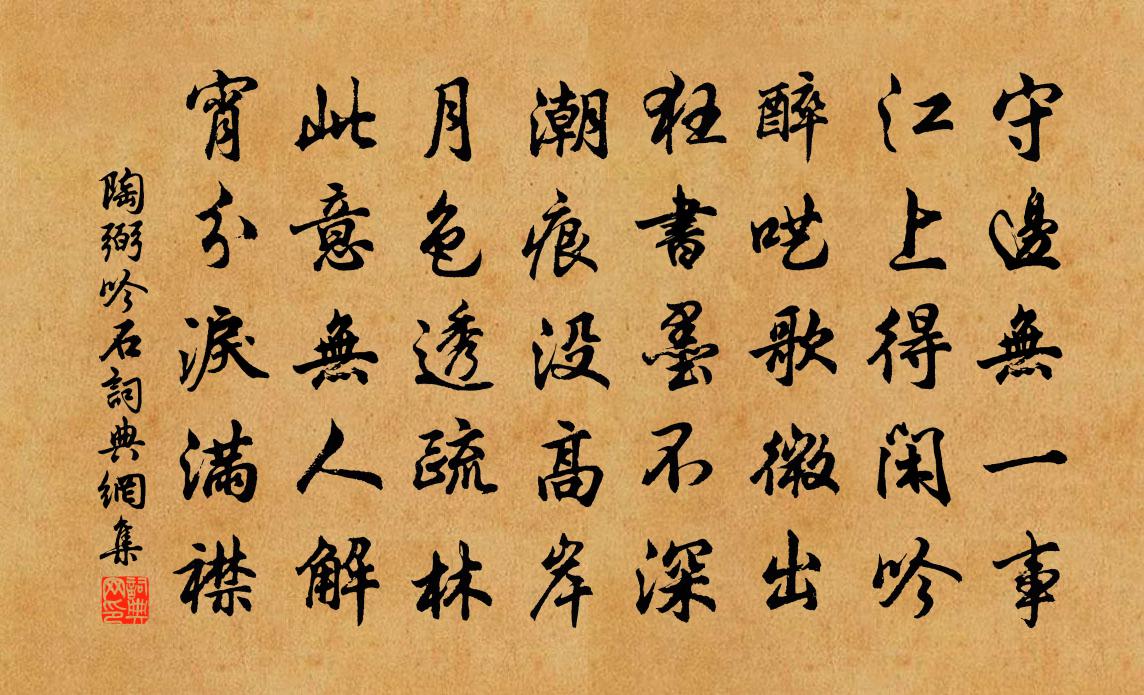 守邊無一事
江上得閑吟
醉哄歌微出
狂書墨不深
潮痕没高岸
月色透疏林
此意無人解
宵分淚滿襟
陶弼吟石詞典網集
詞典网印